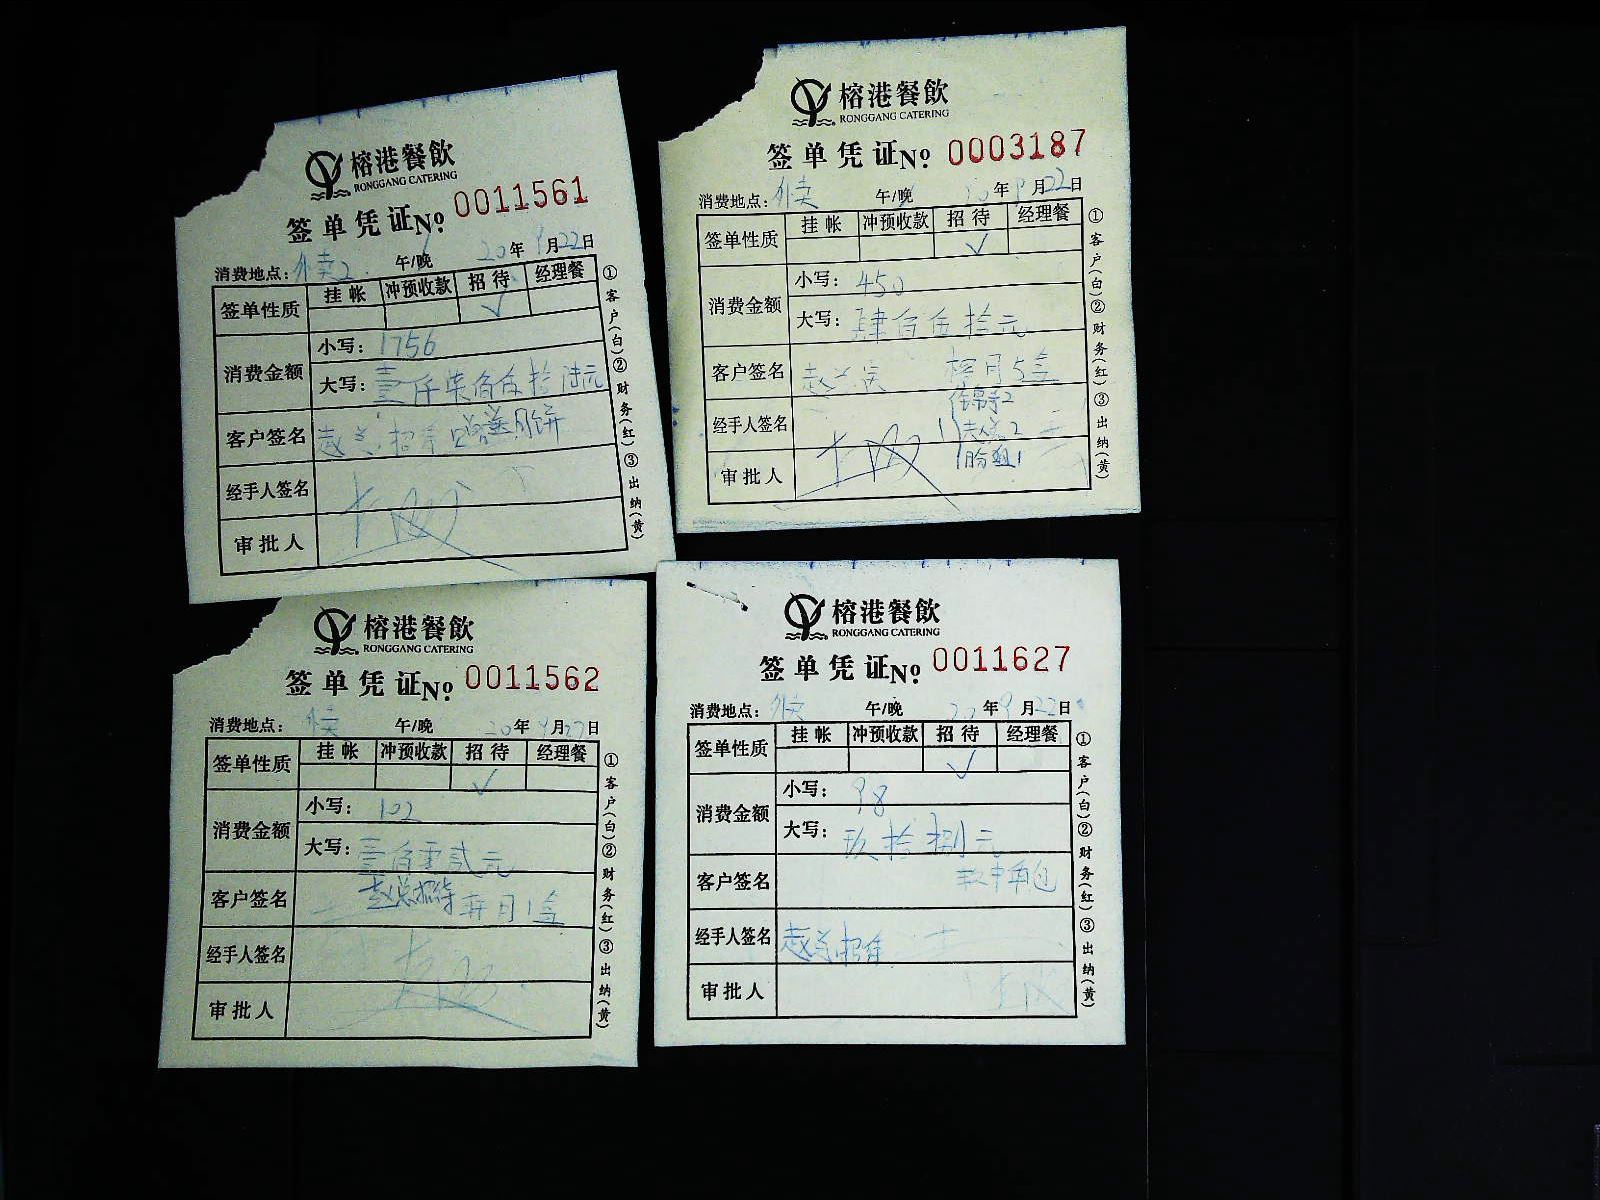 榕港餐飲
RONGGANG CATERING
签单凭证No 0011561
消费地点：外卖2 午/晚 20年9月22日
签单性质 挂帐 冲预收款 招待 经理餐
✓
消费金额 小写：1756
大写：壹仟柒佰伍拾陆元
客户签名 赵总招待 月饼
经手人签名
审批人
①客户(白)②财务(红)③出纳(黄)
榕港餐飲
RONGGANG CATERING
签单凭证No 0003187
消费地点：外卖 午/晚 20年9月22日
签单性质 挂帐 冲预收款 招待 经理餐
✓
消费金额 小写：450
大写：肆佰伍拾元
客户签名 榕月5盒
经手人签名
审批人
①客户(白)②财务(红)③出纳(黄)
榕港餐飲
RONGGANG CATERING
签单凭证No 0011562
消费地点：外卖 午/晚 20年9月27日
签单性质 挂帐 冲预收款 招待 经理餐
✓
消费金额 小写：102
大写：壹佰零贰元
客户签名 赵总招待 月1盒
经手人签名
审批人
①客户(白)②财务(红)③出纳(黄)
榕港餐飲
RONGGANG CATERING
签单凭证No 0011627
消费地点：外卖 午/晚 20年9月22日
签单性质 挂帐 冲预收款 招待 经理餐
✓
消费金额 小写：98
大写：玖拾捌元
客户签名
经手人签名 赵总招待
审批人
①客户(白)②财务(红)③出纳(黄)